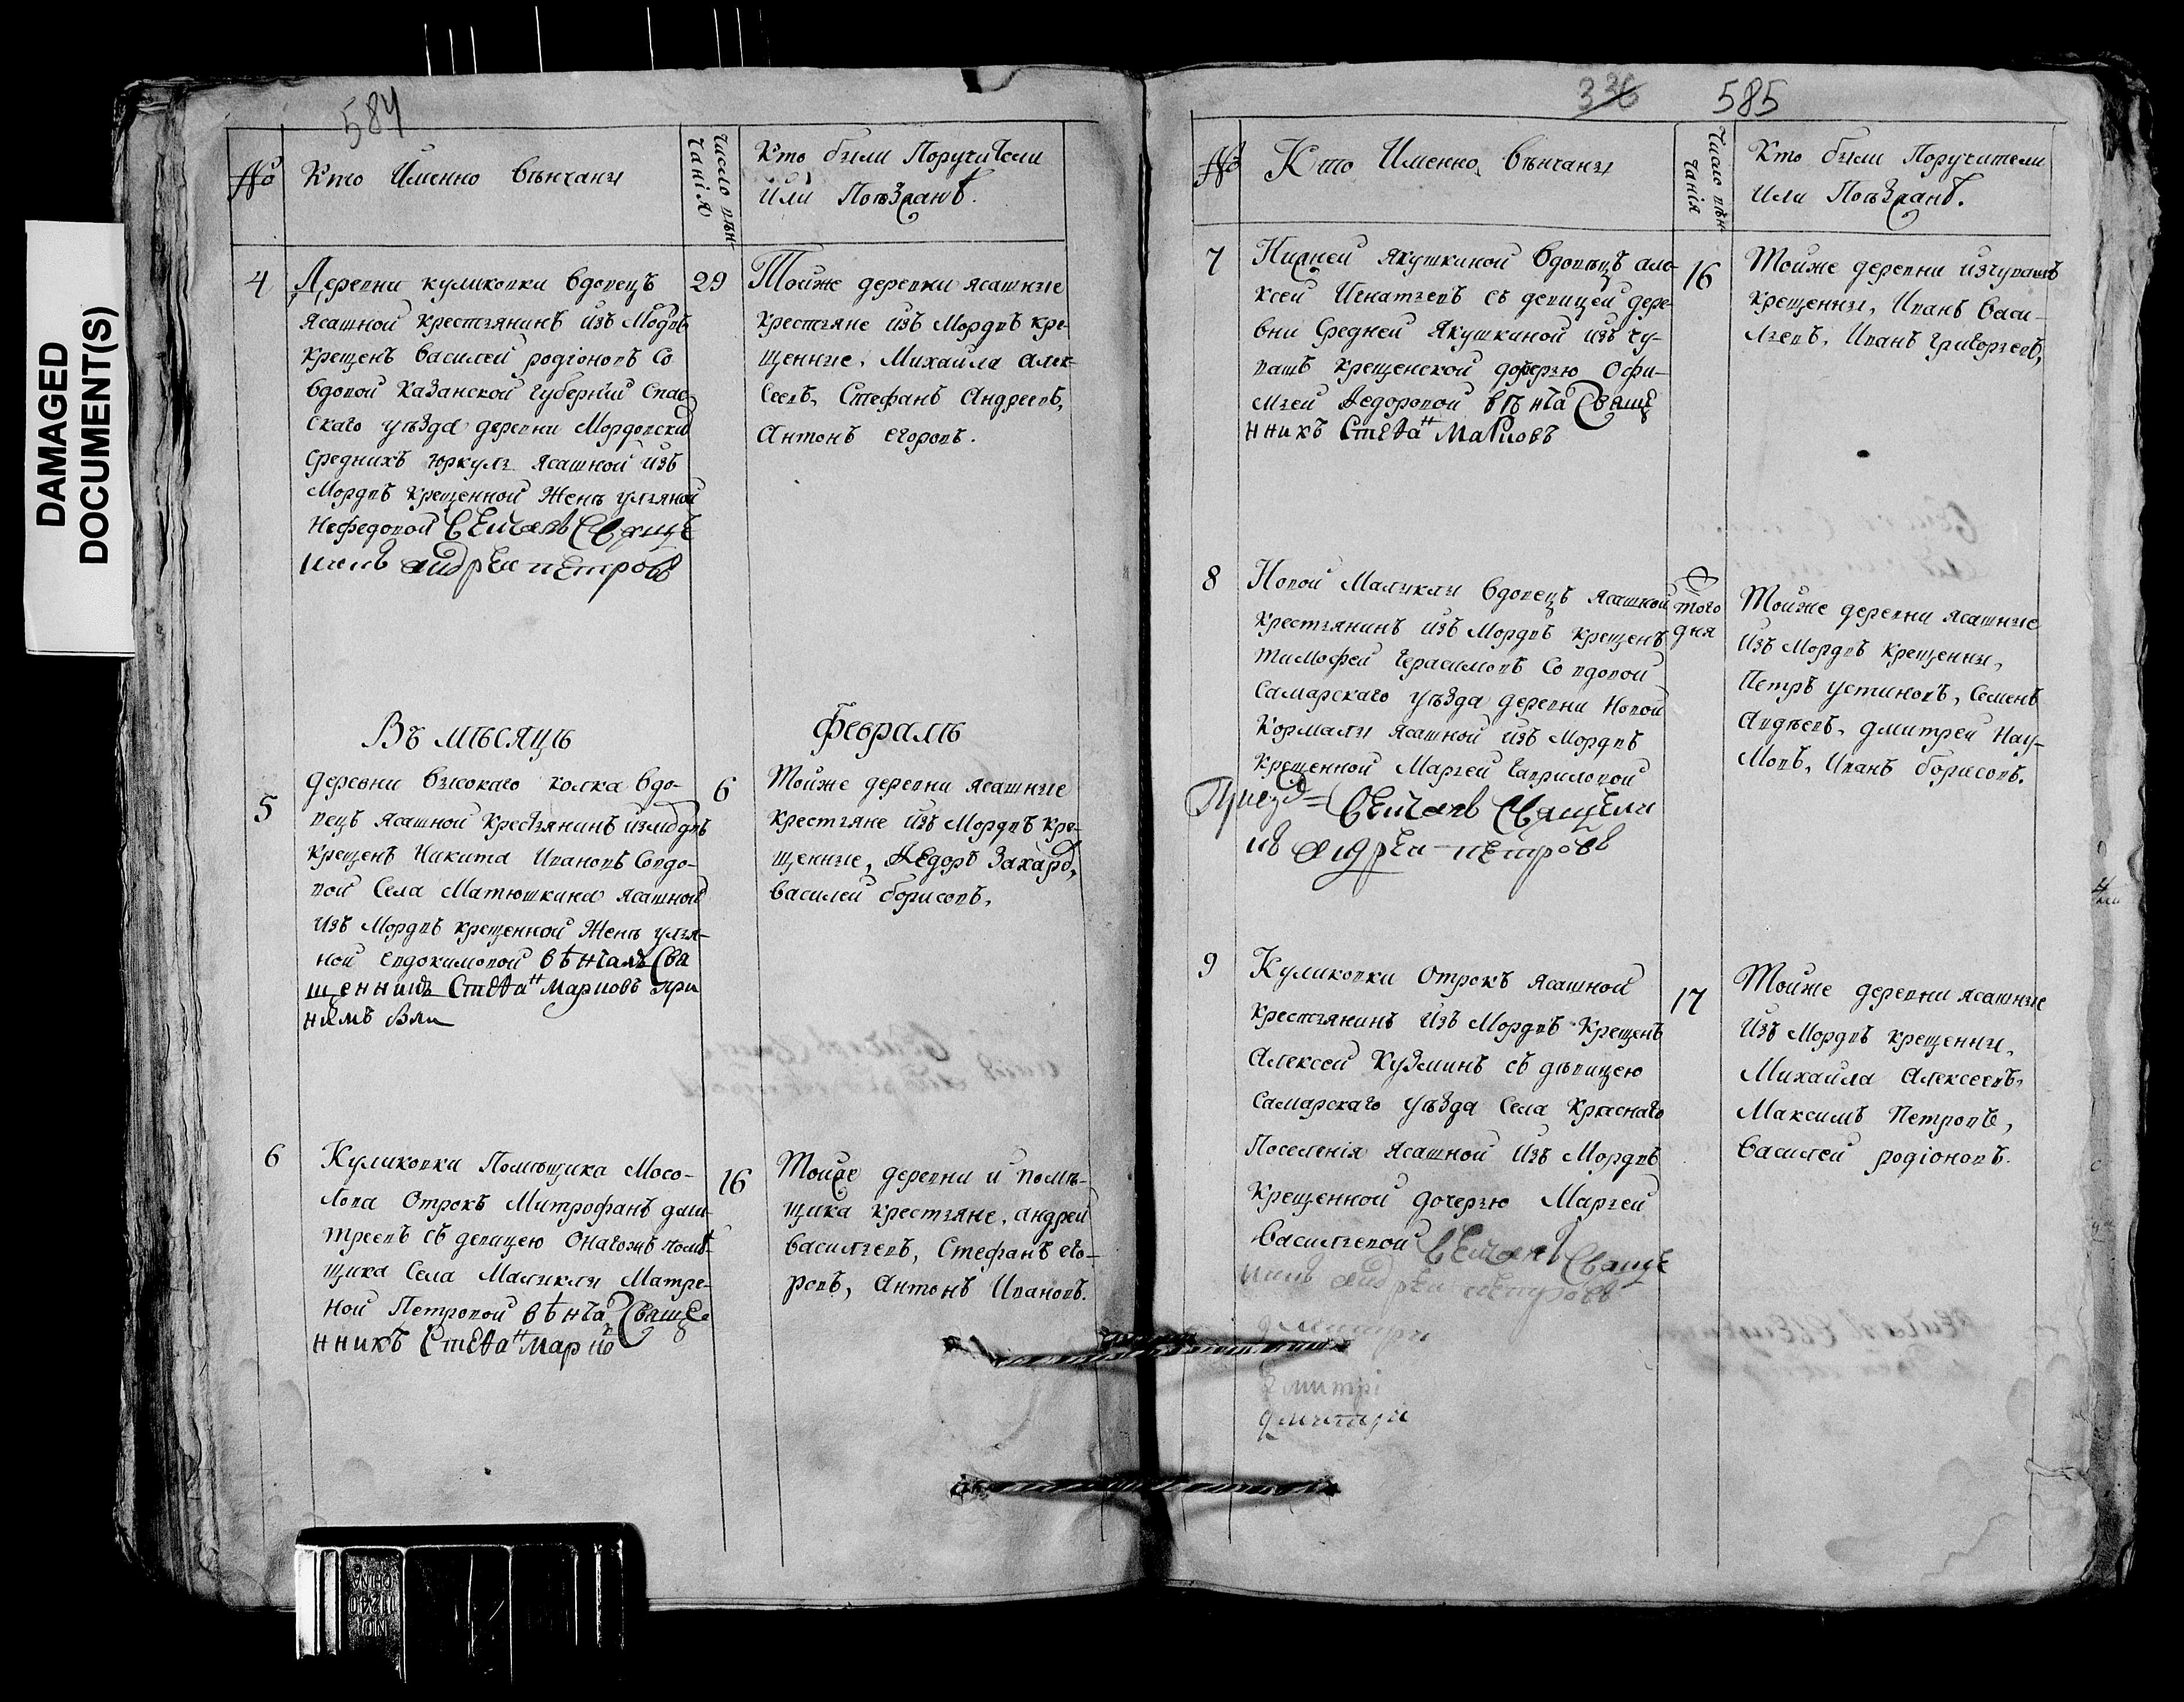 DAMAGED
DOCUMENT(S)
584
№
Кто Именно вѣнчаны
Число вѣн-
чанія
Кто были Поручители
или Поѣзжанѣ.
4
Деревни куликовки вдовецъ
ясашной крестьянинъ изъ Мордвъ
крещенъ василей родіоновъ Со
вдовой казанской губерніи Спас
скаго уѣзда деревни Мордовских
среднихъ юркуль ясашной изъ
Мордвъ крещенной Женъ ульяной
Нефедовой венчалъ Свяще
никъ андреи петровъ
29
Тойже деревни ясашные
крестьяне изъ Мордвъ кре-
щенные, Михайла алек-
сеевъ, Стефанъ Андреевъ,
Антонъ егоровъ.
Въ мѣсяцѣ
февралѣ
5
деревни высокаго колка вдо-
вецъ ясашной крестьянинъ измордвъ
крещенъ Никита Ивановъ Совдо-
вой Села Матюшкина ясашной
изъ Мордвъ крещенной Женъ улья-
ной евдокимовой вѣнчалъ Свя
щенникъ Стефанъ Марковъ при
нимъ
6
Тойже деревни ясашные
крестьяне изъ Мордвъ кре-
щенные, Ѳедоръ Захаро,
василей борисовъ,
6
Куликовки Помѣщика Мосо-
лова Отрокъ Митрофанъ дми-
треевъ съ девицею Онагожъ помѣ-
щика Села Маликлы Матре-
ной Петровой вѣнча Свяще
нникъ Стефанъ Марко
16
Тойже деревни и помѣ-
щика крестьяне, андрей
васильевъ, Стефанъ его-
ровъ, антонъ Ивановъ.
336
585
№
Кто Именно вѣнчаны
Число вѣн
чанія
Кто были Поручители
или Поѣзжанѣ.
7
Нижней якушкиной вдовецъ але-
ксей Игнатьевъ съ девицей дере-
вни Средней Якушкиной изъ чу-
вашъ крещенской дочерью Офи-
мьей Ѳедоровой вѣнча Свяще
нникъ Стефанъ Марковъ
16
Тойже деревни изчувашъ
крещенны, Иванъ васи-
льевъ, Иванъ григорьевъ,
8
Новой Маликлы вдовецъ ясашной
крестьянинъ изъ Мордвъ крещенъ
тимофей герасимовъ Со вдовой
Самарскаго уѣзда деревни Новой
кормалы ясашной изъ Мордвъ
крещенной Марьей гавриловой
венчалъ Священи
къ андреи петровъ
того
дня
Тойже деревни ясашные
изъ Мордвъ крещенны,
Петръ устиновъ, Семенъ
Авдѣевъ, дмитрей Нау-
мовъ, Иванъ борисовъ.
9
Куликовки Отрокъ ясашной
крестьянинъ изъ Мордвъ крещенъ
Алексей Кузминъ съ дѣвицею
Самарскаго уѣзда Села краснаго
Поселенія ясашной изъ Мордвъ
крещенной дочерью Марьей
васильевой венчалъ Свяще
никъ андреи петровъ
17
Тойже деревни ясашные
изъ Мордвъ крещенны,
Михайла Алексеевъ,
Максимъ Петровъ,
Василей родіоновъ.
дмитри
дмитрі
дмитри